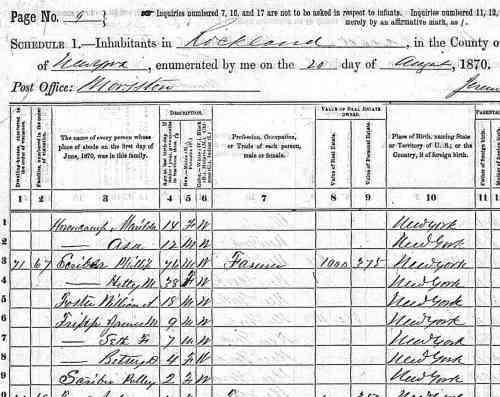 Page No. 9 } ☞ Inquiries numbered 7, 16, and 17 are not to be asked in respect to infants. Inquiries numbered 11, 12,
merely by an affirmative mark, as /.
SCHEDULE 1.—Inhabitants in Rockland, in the County o
of New York, enumerated by me on the 20 day of August, 1870.
Post Office: Morriston
DESCRIPTION. VALUE OF REAL ESTATE OWNED.
Dwelling-houses, numbered in the order of visitation.
Families, numbered in the order of visitation.
The name of every person whose place of abode on the first day of June, 1870, was in this family.
Profession, Occupation, or Trade of each person, male or female.
Value of Real Estate.
Value of Personal Estate.
Place of Birth, naming State or Territory of U. S.; or the Country, if of foreign birth.
Father of foreign birth.
1 2 3 4 5 6 7 8 9 10 11 12
1 14 F W New York
2 — Asa 12 M W New York
3 71 67 Scriber Phillip 76 M W Farmer 1000 275 New York
4 — Hetty M 38 F W New York
5 Foster William A 18 M W New York
6 Tripp James M 9 M W New York
7 — Seth F 7 M W New York
8 — Betsey 4 F W New York
9 Scriber Polley 2 F W New York